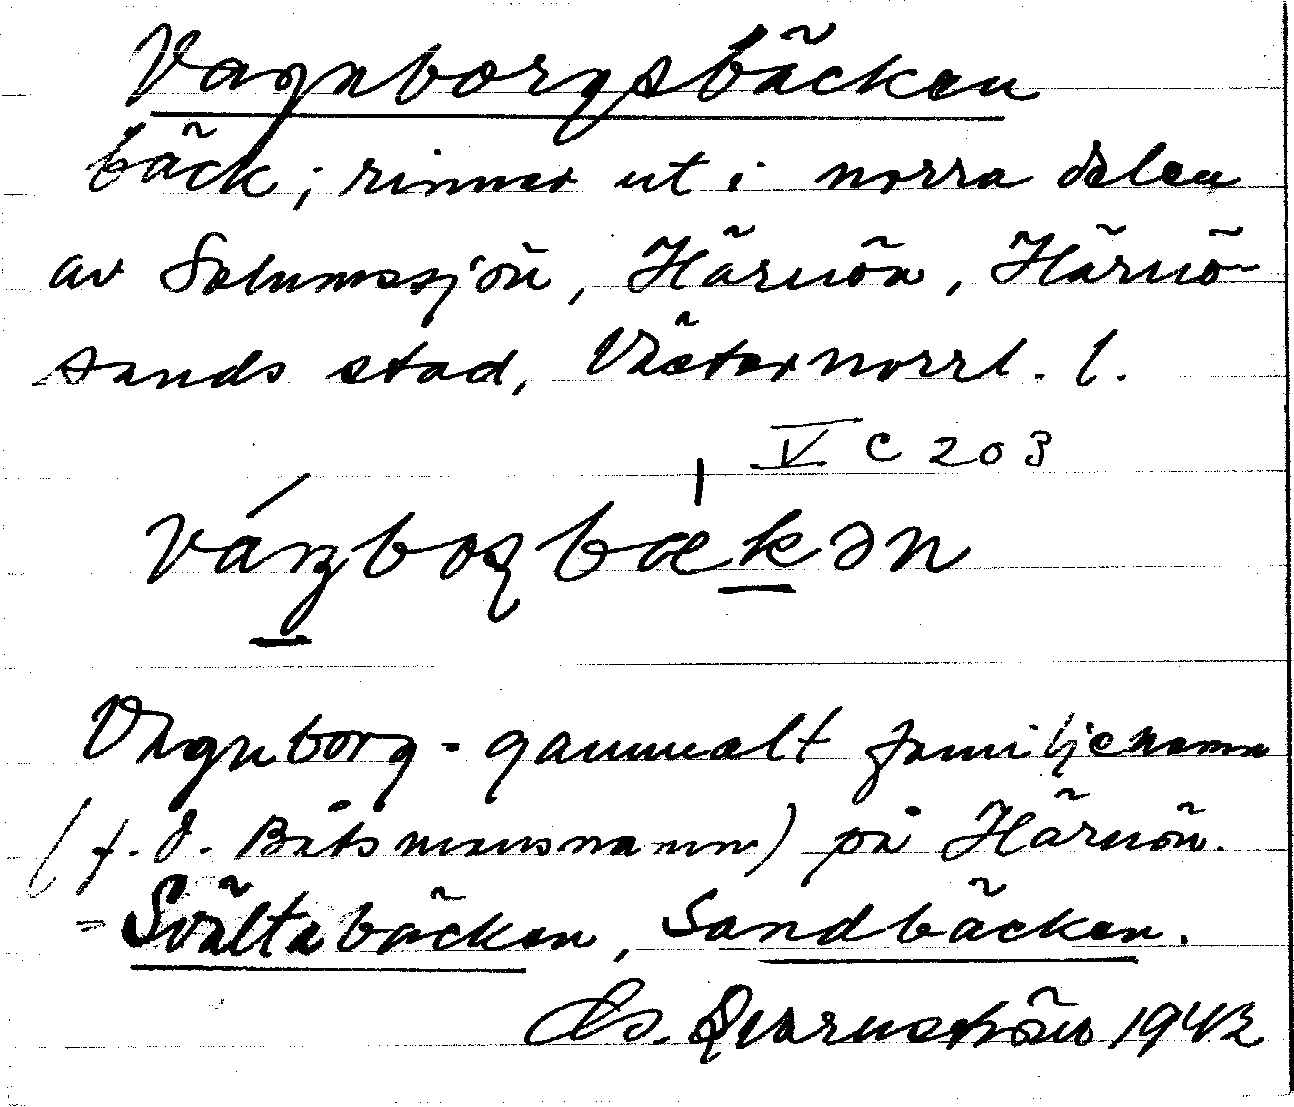 Vagnborgsbäcken
bäck; rinner ut i norra delen
av Solumssjön, Härnön, Härnö-
sands stad, Västernorrl. l.
V C 203
Vagnborg - gammalt familjenamn
(f.d. Båtsmansnamn) på Härnön.
= Svältabäcken, Sandbäcken.
Qvarnström 1942